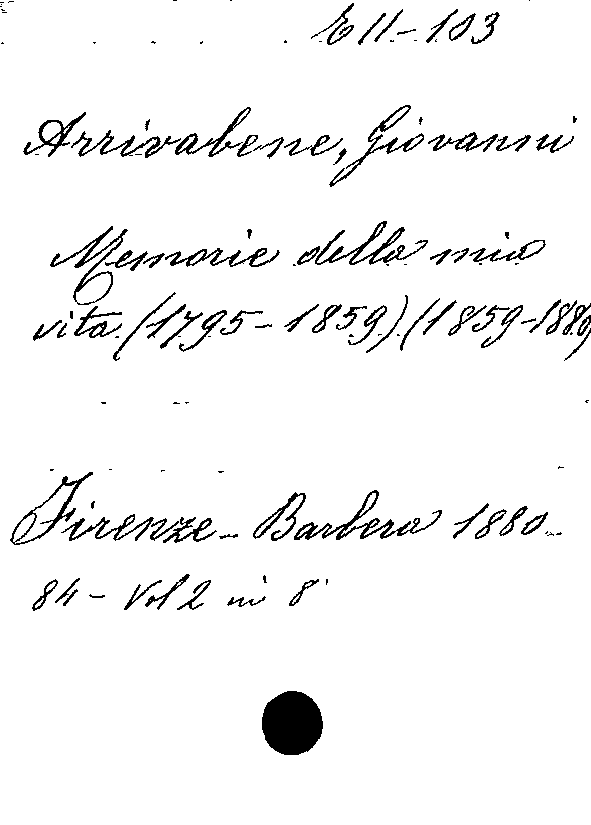 E 11-103
Arrivabene, Giovanni
Memorie della mia
vita. (1795-1859) (1859-1880)
Firenze - Barbera 1880-
84 - Vol 2 in 8°